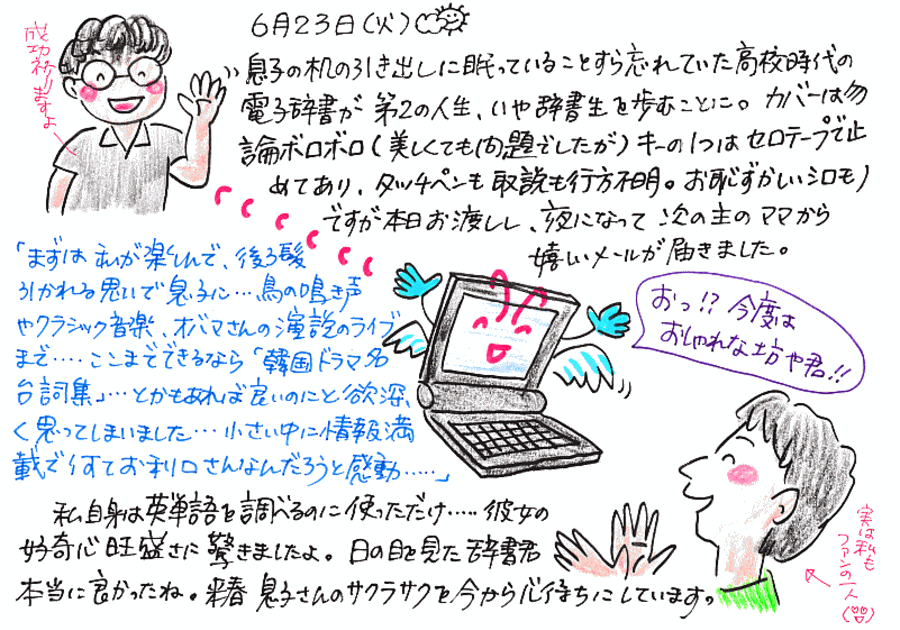 6月23日(火)
成功祈りますよ
息子の机の引き出しに眠っていることすら忘れていた高校時代の
電子辞書が第2の人生、いや辞書生を歩むことに。カバーは勿
論ボロボロ(美しくても問題でしたが)キーの1つはセロテープで止
めてあり、タッチペンも取説も行方不明。お恥ずかしいシロモノ
ですが本日お渡しし、夜になって次の主のママから
嬉しいメールが届きました。
「まずは私が楽しんで、後ろ髪
引かれる思いで息子に…鳥の鳴き声
やクラシック音楽、オバマさんの演説のライブ
まで…. ここまでできるなら「韓国ドラマ名
台詞集」…とかもあれば良いのにと欲深
く思ってしまいました…小さい中に情報満
載で何ておりロさんなんだろうと感動……」
おっ!?今度は
おしゃれな坊や君!!
私自身は英単語を調べるのに使っただけ…..彼女の
好奇心旺盛さに驚きましたよ。日の目を見た辞書君
本当に良かったね。来春息子さんのサクラサクを今から心待ちにしています。
実は私も
ファンの一人